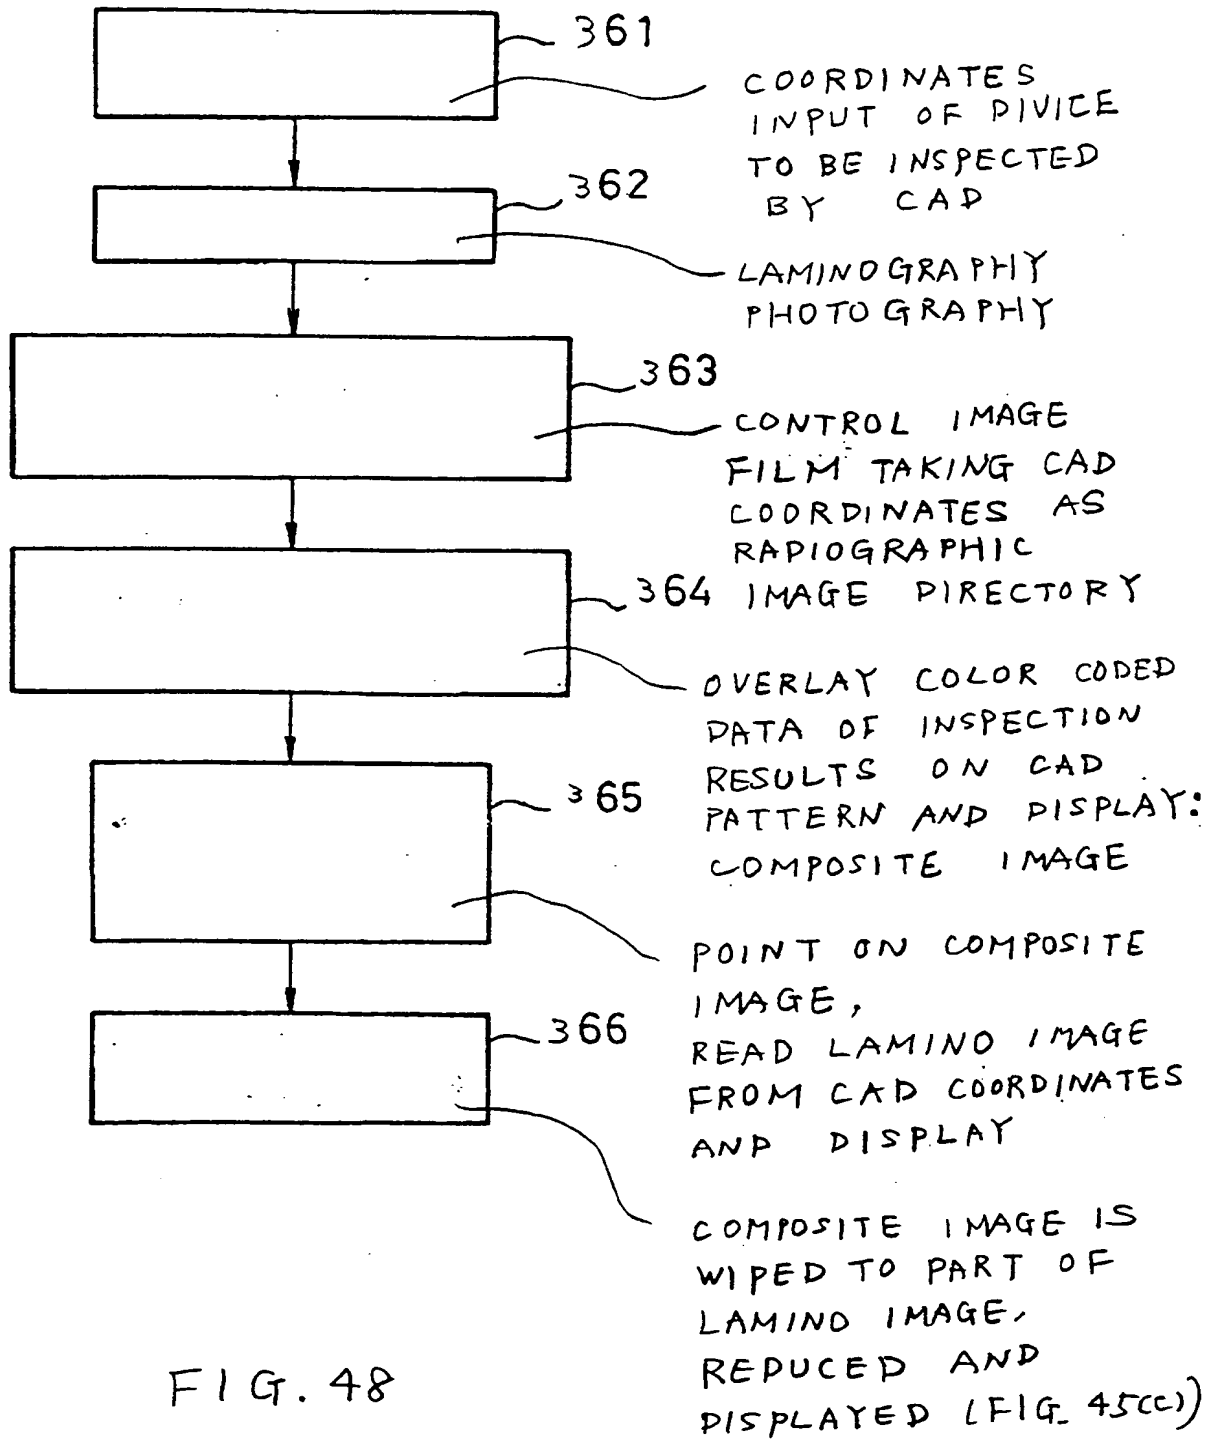 361
COORDINATES
INPUT OF DIVICE
TO BE INSPECTED
BY CAD
362
LAMINOGRAPHY
PHOTOGRAPHY
363
CONTROL IMAGE
FILM TAKING CAD
COORDINATES AS
RADIOGRAPHIC
IMAGE DIRECTORY
364
OVERLAY COLOR CODED
DATA OF INSPECTION
RESULTS ON CAD
PATTERN AND DISPLAY:
COMPOSITE IMAGE
365
POINT ON COMPOSITE
IMAGE,
READ LAMINO IMAGE
FROM CAD COORDINATES
AND DISPLAY
366
COMPOSITE IMAGE IS
WIPED TO PART OF
LAMINO IMAGE,
REDUCED AND
DISPLAYED (FIG. 45(c))
FIG. 48